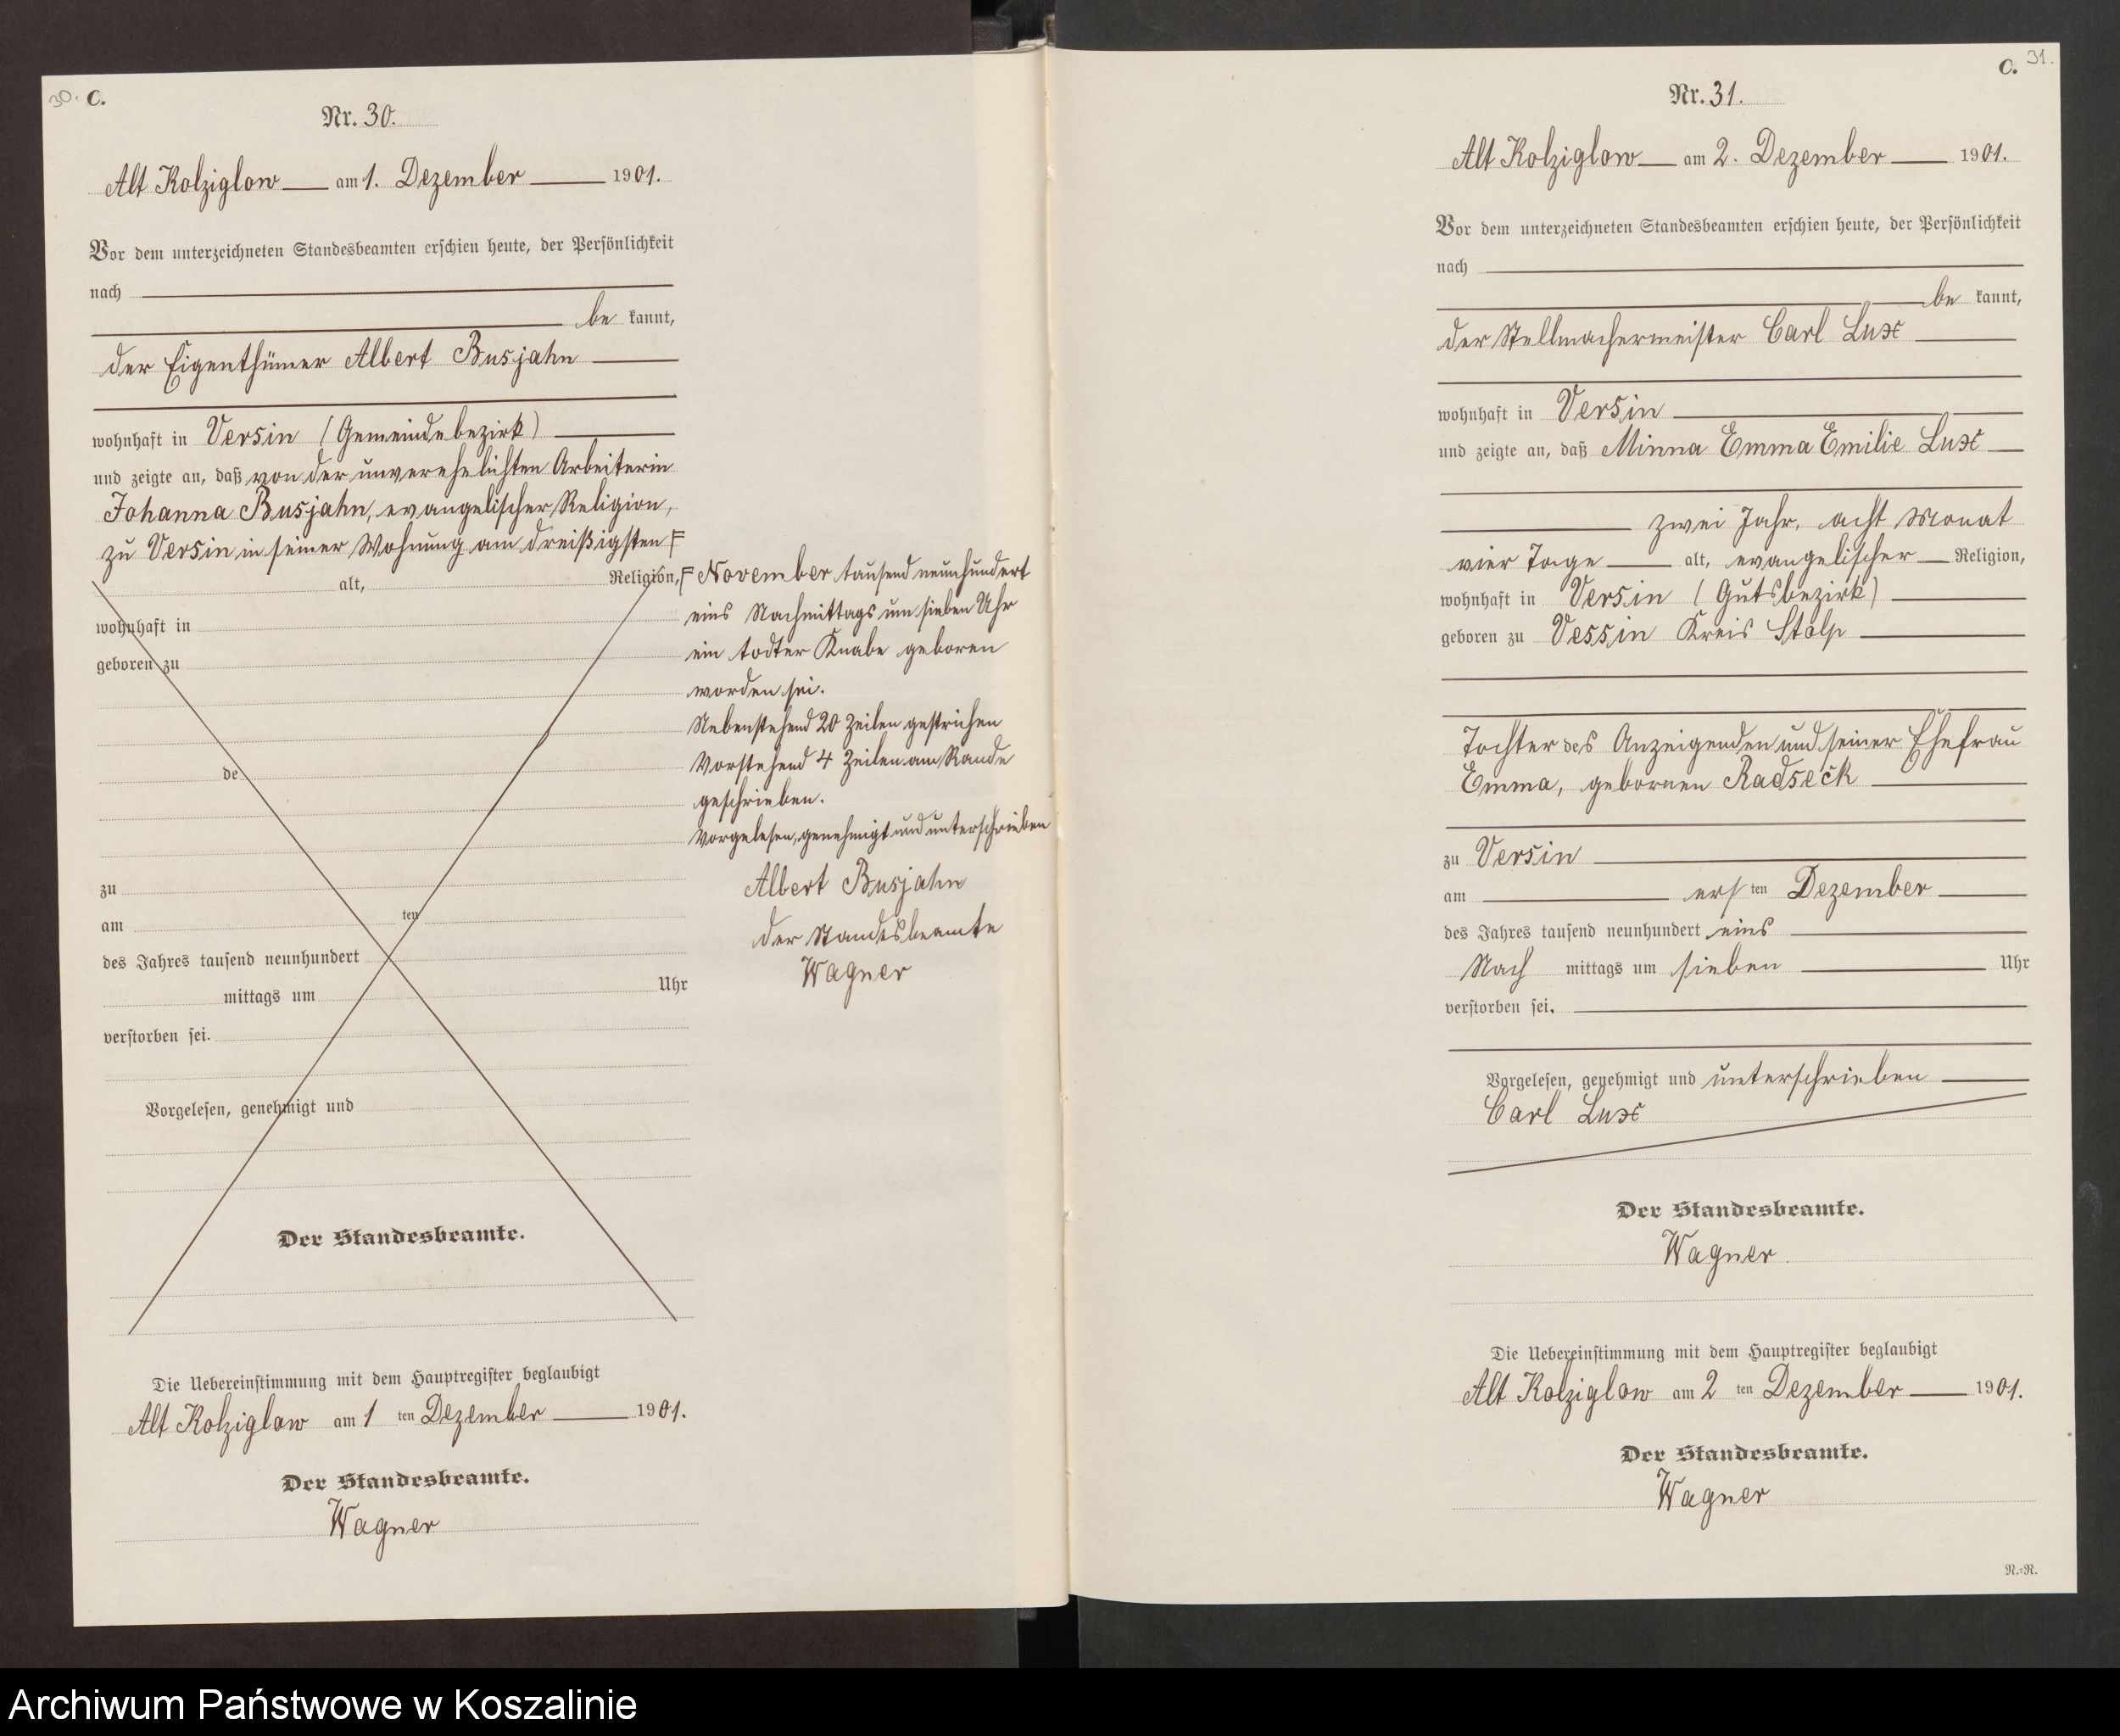 30. C.
Nr. 30.
Alt Kolziglow am 1. Dezember 1901.
Vor dem unterzeichneten Standesbeamten erschien heute, der Persönlichkeit
nach
be kannt,
der Eigenthümer Albert Busjahn
wohnhaft in Versin (Gemeindebezirk)
und zeigte an, daß von der unverehelichten Arbeiterin
Johanna Busjahn, evangelischer Religion,
zu Versin in seiner Wohnung am dreißigsten F
alt, Religion,
wohnhaft in
geboren zu
de
zu
am ten
des Jahres tausend neunhundert
mittags um Uhr
verstorben sei.
Vorgelesen, genehmigt und
Der Standesbeamte.
F November tausend neunhundert
eins Nachmittags um sieben Uhr
ein todter Knabe geboren
worden sei.
Nebenstehend 20 Zeilen gestrichen
Vorstehend 4 Zeilen am Rande
geschrieben.
Vorgelesen, genehmigt und unterschrieben
Albert Busjahn
der Standesbeamte
Wagner
Die Uebereinstimmung mit dem Hauptregister beglaubigt
Alt Kolziglow am 1 ten Dezember 1901.
Der Standesbeamte.
Wagner
C. 31.
Nr. 31.
Alt Kolziglow am 2. Dezember 1901.
Vor dem unterzeichneten Standesbeamten erschien heute, der Persönlichkeit
nach
be kannt,
der Stellmachermeister Carl Lux
wohnhaft in Versin
und zeigte an, daß Minna Emma Emilie Lux
zwei Jahr, acht Monat
vier Tage alt, evangelischer Religion,
wohnhaft in Versin (Gutsbezirk)
geboren zu Vessin Kreis Stolp
Tochter des Anzeigenden und seiner Ehefrau
Emma, gebornen Radseck
zu Versin
am ers ten Dezember
des Jahres tausend neunhundert eins
Nach mittags um sieben Uhr
verstorben sei.
Vorgelesen, genehmigt und unterschrieben
Carl Lux
Der Standesbeamte.
Wagner
Die Uebereinstimmung mit dem Hauptregister beglaubigt
Alt Kolziglow am 2 ten Dezember 1901.
Der Standesbeamte.
Wagner
N.=N.
Archiwum Państwowe w Koszalinie